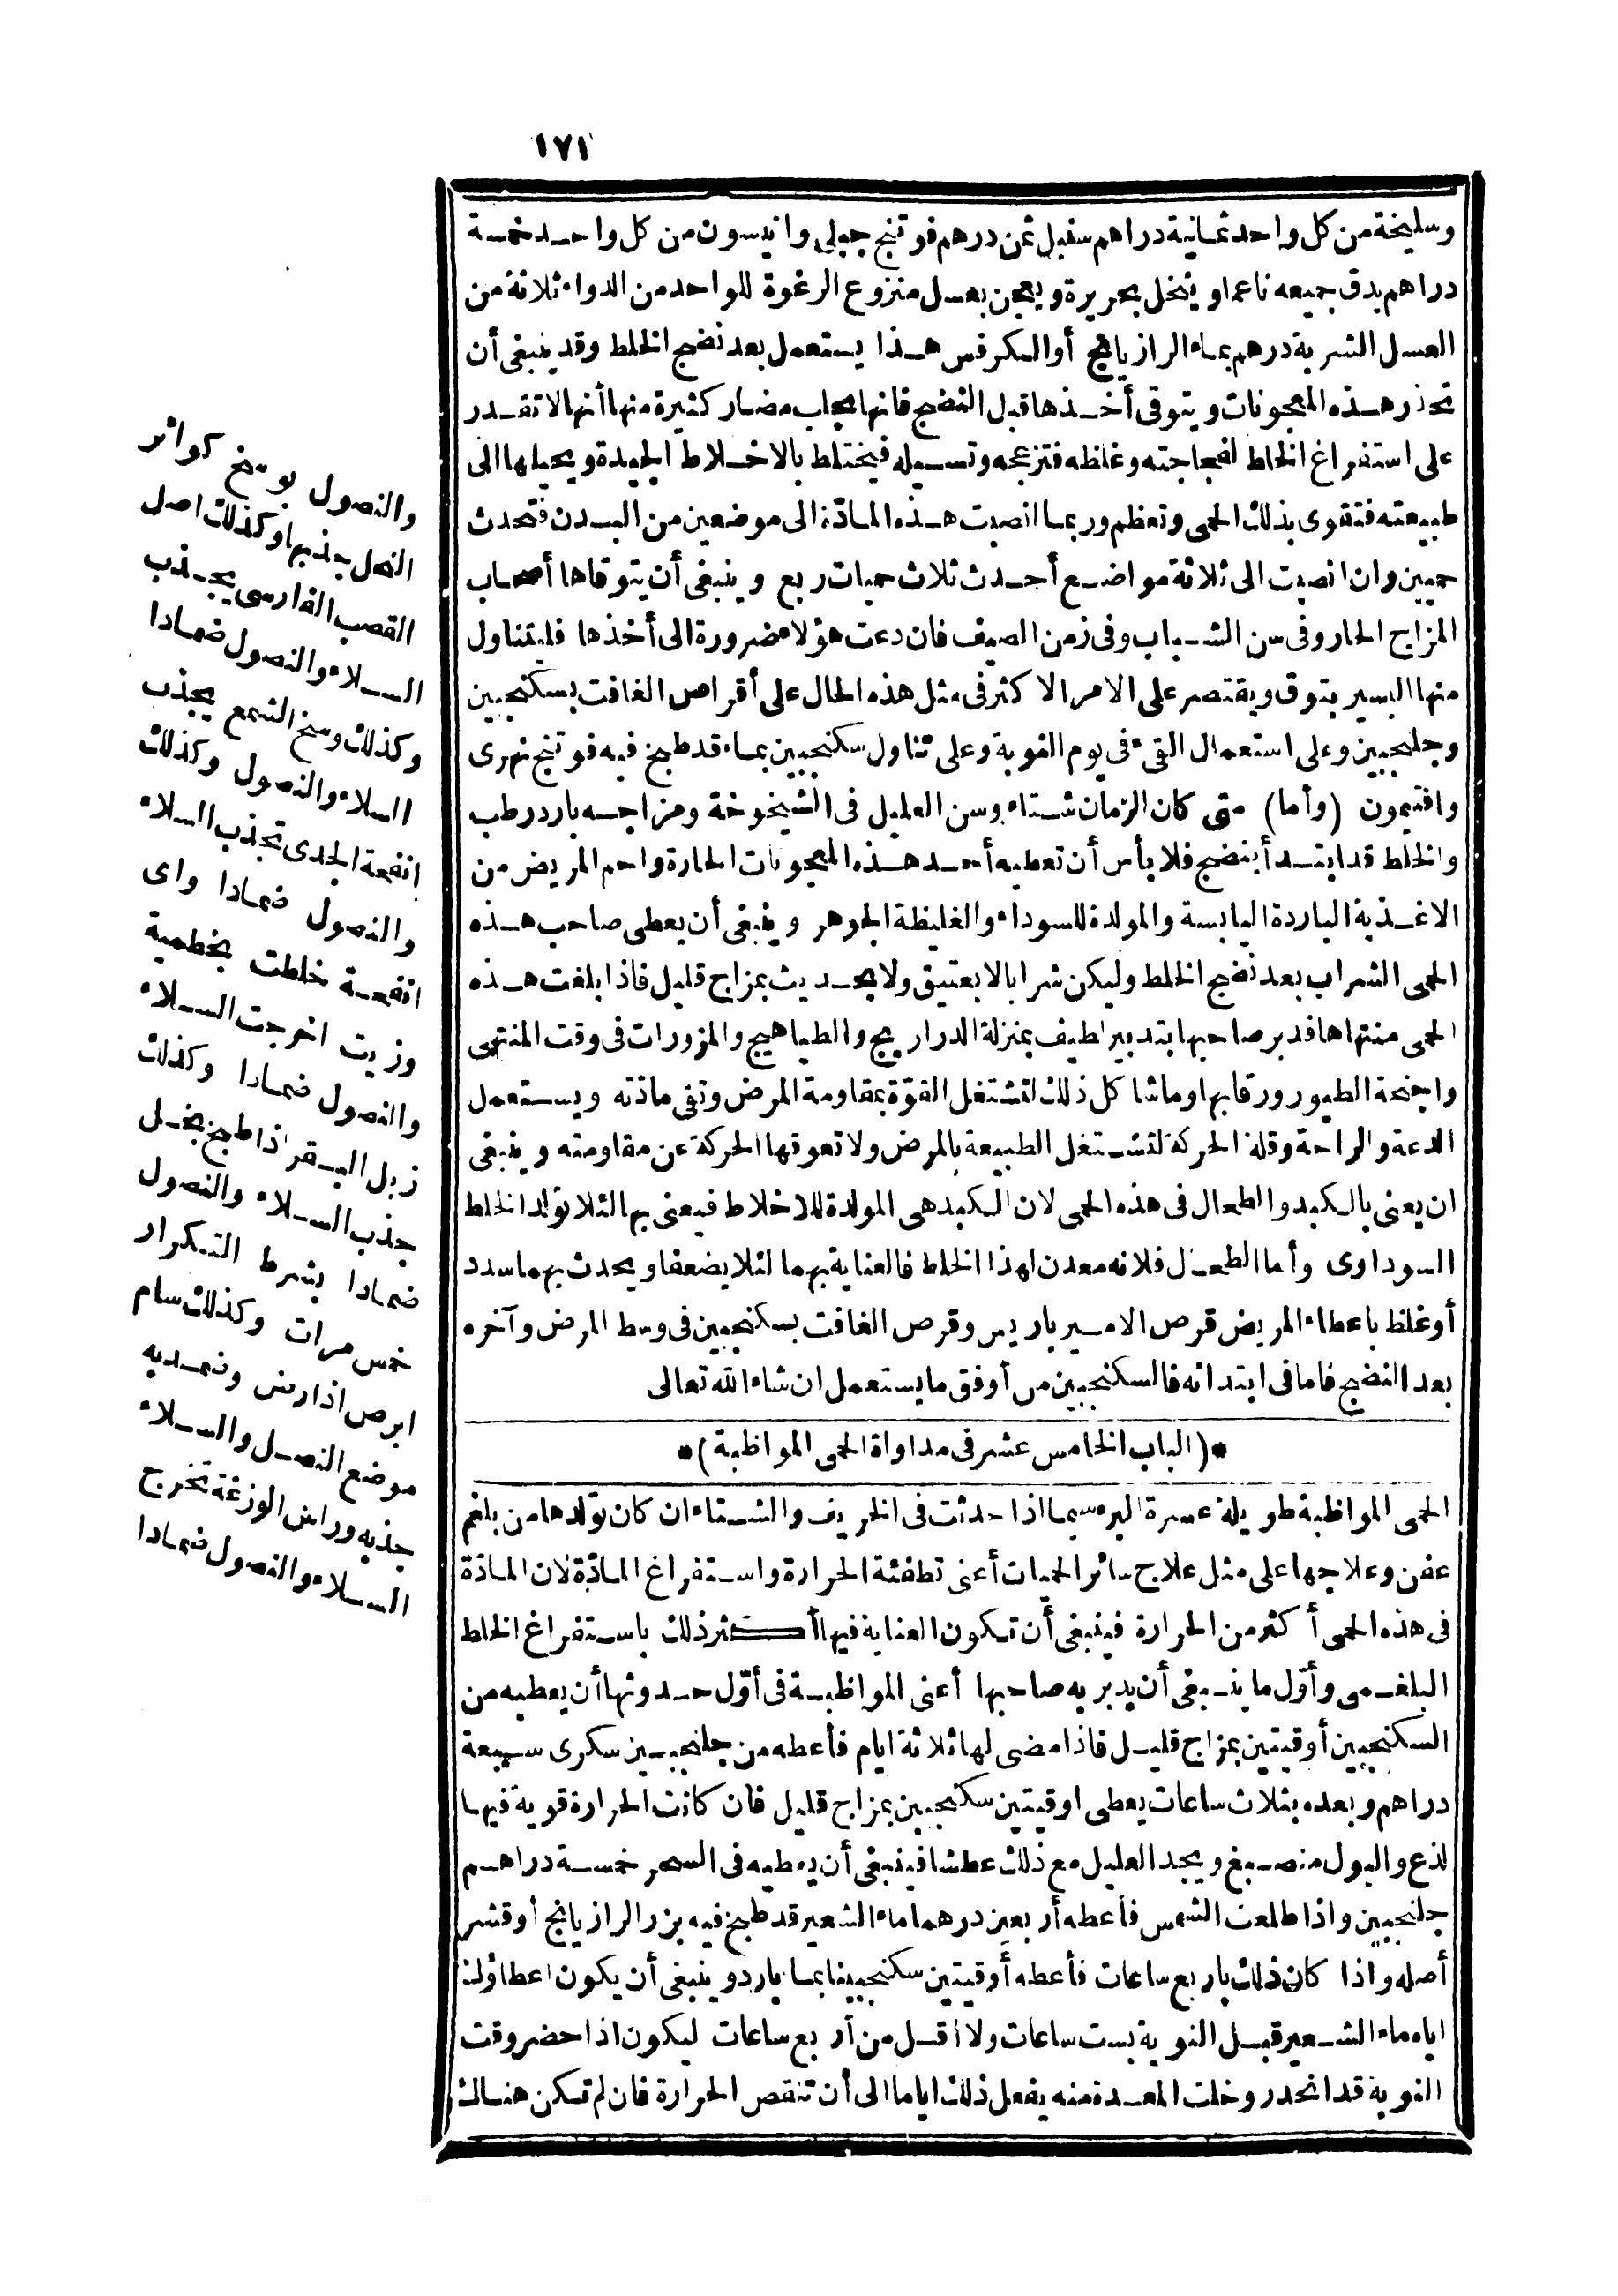 ١٧١
وسليخة من كل واحد ثمانية دراهم سنبل ثمن درهم فوتنج جبلى وانيسون من كل واحد خمسة
دراهم يدق جميعه ناعما وينخل بحريرة ويعجن بعسل منزوع الرغوة للواحد من الدواء ثلاثة من
العسل الشربة درهم بماء الرازيانج أو الكرفس هذا يستعمل بعد نضج الخلط وقد ينبغى أن
تحذر هذه المعجونات ويتوقى أخذها قبل النضج فانها تجلب مضار كثيرة منها أنها لا تقدر
على استفراغ الخلط لفجاجته وغلظه فتزعجه وتسيله فيختلط بالاخلاط الجيدة ويحيلها الى
طبيعته فتقوى بذلك الحمى وتعظم وربما انصبت هذه المادّة الى موضعين من البدن فتحدث
حميين وان انصبت الى ثلاثة مواضع أحدث ثلاث حميات ربع وينبغى أن يتوقاها أصحاب
المزاج الحار وفى سن الشباب وفى زمن الصيف فان دعت هؤلاء ضرورة الى أخذها فليتناول
منها اليسير بتوق ويقتصر على الامر الاكثر فى مثل هذه الحال على أقراص الغافت بسكنجبين
وجلنجبين وعلى استعمال القىء فى يوم النوبة وعلى تناول سكنجبين بماء قد طبخ فيه فوتنج نهرى
وافتيمون (وأما) متى كان الزمان شتاء وسن العليل فى الشيخوخة ومزاجه بارد رطب
والخلط قد ابتدأ بنضج فلا بأس أن تعطيه أحد هذه المعجونات الحارة واحم المريض من
الاغذية الباردة اليابسة والمولدة للسوداء والغليظة الجوهر وينبغى أن يعطى صاحب هذه
الحمى الشراب بعد نضج الخلط وليكن شرابا لا بعتيق ولا بحديث بمزاج قليل فاذا بلغت هذه
الحمى منتهاها فدبر صاحبها بتدبير لطيف بمنزلة الدراريج والطياهيج والمزورات فى وقت المنتهى
واجنحة الطيور ورقابها وماشا كل ذلك لتشتغل القوّة بمقاومة المرض وتفى ماذته ويستعمل
الدعة والراحة وقلة الحركة لتشتغل الطبيعة بالمرض ولا تعوقها الحركة عن مقاومته وينبغى
ان يعنى بالكبد والطحال فى هذه الحمى لان الكبد هى المولدة للاخلاط فيعنى بها لئلا تولد الخلط
السوداوى وأما الطحال فلانه معدن لهذا الخلط فالعناية بهما لئلا يضعفا ويحدث بهما سدد
أو غلظ باعطاء المريض قرص الاميرباريس وقرص الغافت بسكنجبين فى وسط المرض وآخره
بعد النضج فاما فى ابتدائه فالسكنجبين من أوفق ما يستعمل ان شاء الله تعالى
*(الباب الخامس عشر فى مداواة الحمى المواظبة)*
الحمى المواظبة طويلة عسرة البرء سيما اذا حدثت فى الخريف والشتاء ان كان تولدها من بلغم
عفن وعلاجها على مثل علاج سائر الحميات أعنى تطفئة الحرارة واستفراغ المادّة لان المادّة
فى هذه الحمى أكثر من الحرارة فينبغى أن تكون العناية فيها أكثر ذلك باستفراغ الخلط
البلغمى وأوّل ما ينبغى أن يدبر به صاحبها أعنى المواظبة فى أوّل حدوثها أن يعطيه من
السكنجبين أوقيتين بمزاج قليل فاذا مضى لها ثلاثة ايام فأعطه من جلنجبين سكرى سبعة
دراهم وبعده بثلاث ساعات يعطى اوقيتين سكنجبين بمزاج قليل فان كانت الحرارة قوية فيها
لذع والبول منصبغ ويجد العليل مع ذلك عطشا فينبغى أن يعطيه فى السحر خمسة دراهم
جلنجبين واذا طلعت الشمس فأعطه أربعين درهما ماء الشعير قد طبخ فيه بزر الرازيانج أو قشر
أصله واذا كان ذلك باربع ساعات فأعطه أوقيتين سكنجبينا بماء بارد وينبغى أن يكون اعطاؤك
اياه ماء الشعير قبل النوبة بست ساعات ولا اقل من أربع ساعات ليكون اذا حضر وقت
النوبة قد انحدر وخلت المعدة منه يفعل ذلك اياما الى أن تنقص الحرارة فان لم تكن هناك
والنصول بوسخ كوائر
النحل جذبها وكذلك اصل
القصب الفارسى يجذب
السلاء والنصول ضمادا
وكذلك وسخ الشمع يجذب
السلاء والنصول وكذلك
انفحة الجدى تجذب السلاء
والنصول ضمادا واى
انفحة خلطت بخطمية
وزيت اخرجت السلاء
والنصول ضمادا وكذلك
زبل البقر اذا طبخ بخل
جذب السلاء والنصول
ضمادا بشرط التكرار
خمس مرات وكذلك سام
ابرص اذا رض وضمد به
موضع النصل والسلاء
جذبه وراس الوزغة تخرج
السلاء والنصول ضمادا